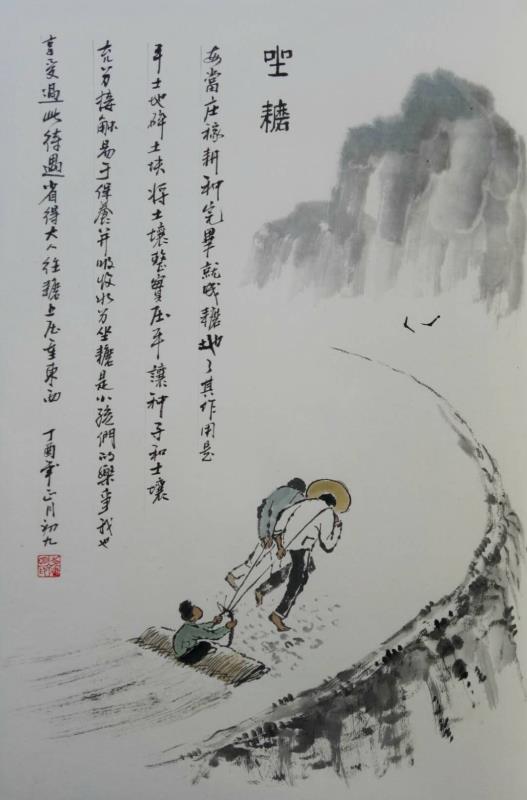 坐耱
每當庄稼耕种完畢就成耱地了其作用是
平土地碎土块将土壤整實压平讓种子和土壤
充分接触易于保養并吸收水分坐耱是小孩們的樂事我也
享受過此待遇省得大人往耱上压重東西 丁酉年正月初九